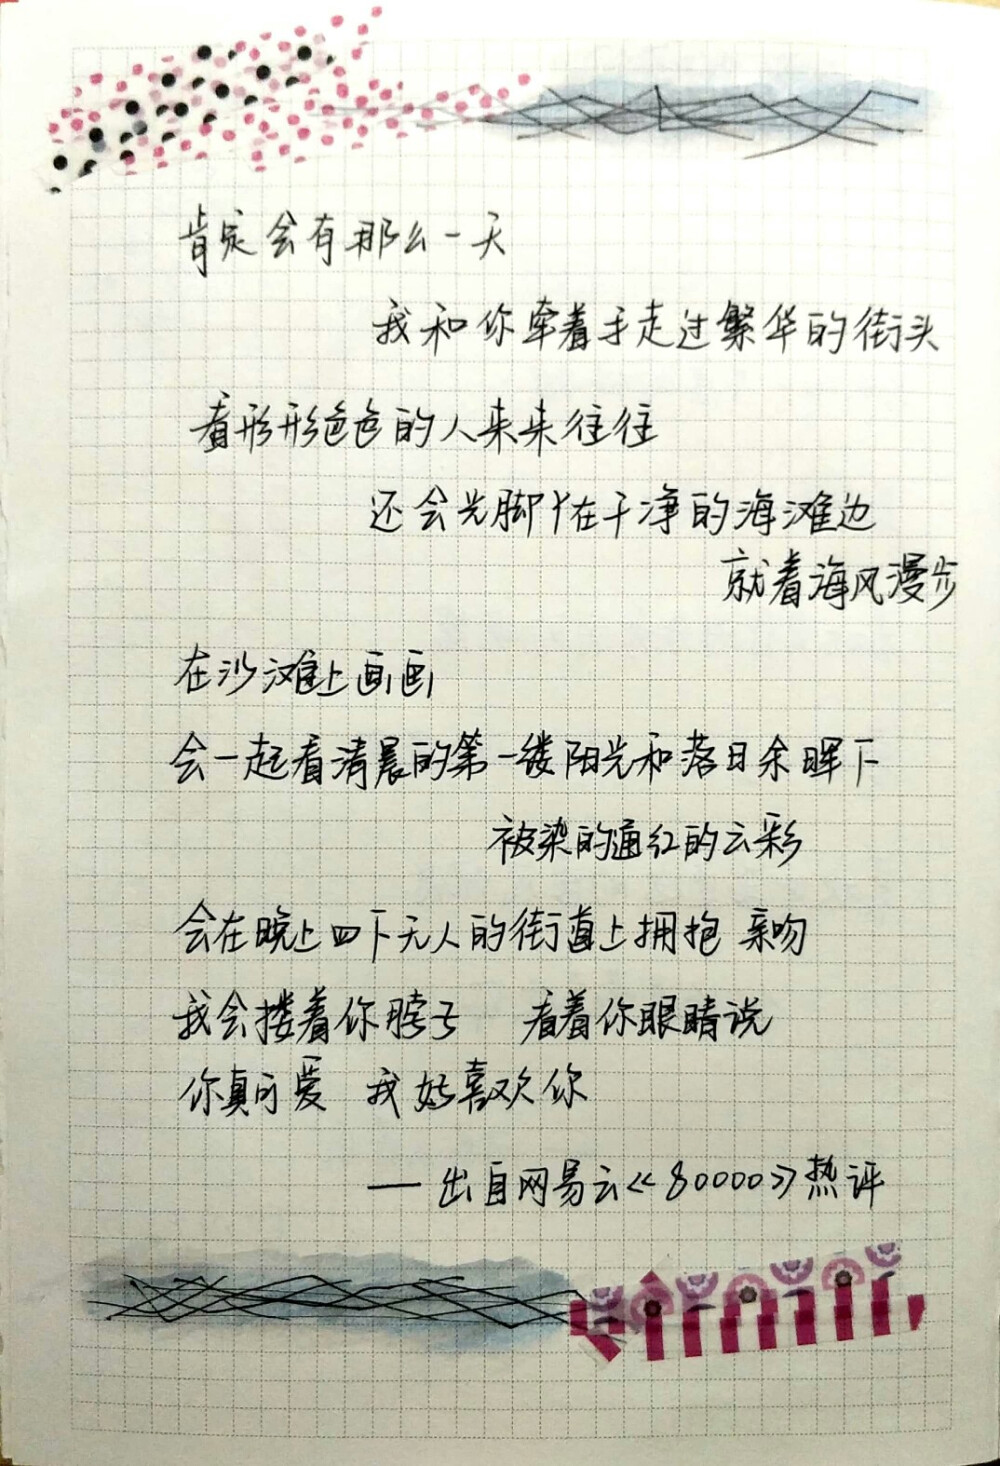 肯定会有那么一天
我和你牵着手走过繁华的街头
看形形色色的人来来往往
还会光脚丫在干净的海滩边
就着海风漫步
在沙滩上画画
会一起看清晨的第一缕阳光和落日余晖下
被染的通红的云彩
会在晚上四下无人的街道上拥抱 亲吻
我会搂着你脖子 看着你眼睛说
你真可爱 我好喜欢你
— 出自网易云《80000》热评